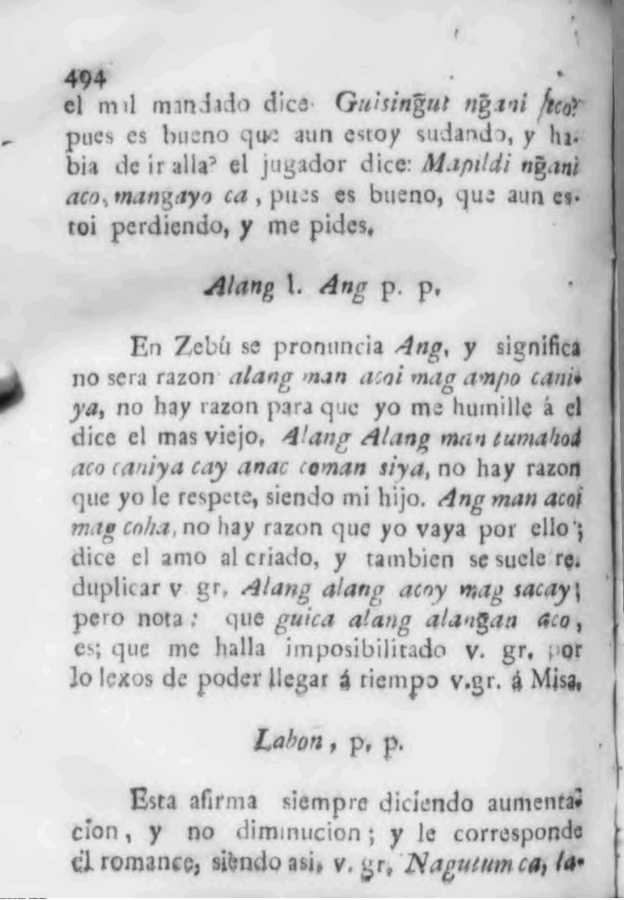 494
el mal mandado dice Guising̃ut ng̃ani aco?
pues es bueno que aun estoy sudando, y ha-
bia de ir alla? el jugador dice: Mapildi ng̃ani
aco, mang̃ayo ca, pues es bueno, que aun es-
toi perdiendo, y me pides.
Alang l. Ang p. p.
En Zebú se pronuncia Ang, y significa
no sera razon alang man acoi mag ampo cani-
ya, no hay razon para que yo me humille á el
dice el mas viejo. Alang Alang man tumahod
aco caniya cay anac coman siya, no hay razon
que yo le respete, siendo mi hijo. Ang man acoi
mag coha, no hay razon que yo vaya por ello;
dice el amo al criado, y tambien se suele re-
duplicar v gr. Alang alang acoy mag sacay;
pero nota: que guica alang alang̃an aco,
es; que me halla imposibilitado v. gr. por
lo lexos de poder llegar á tiempo v.gr. á Misa.
Labon, p. p.
Esta afirma siempre diciendo aumenta-
cion, y no diminucion; y le corresponde
el romance, siendo asi. v. gr. Nagutum ca, la-